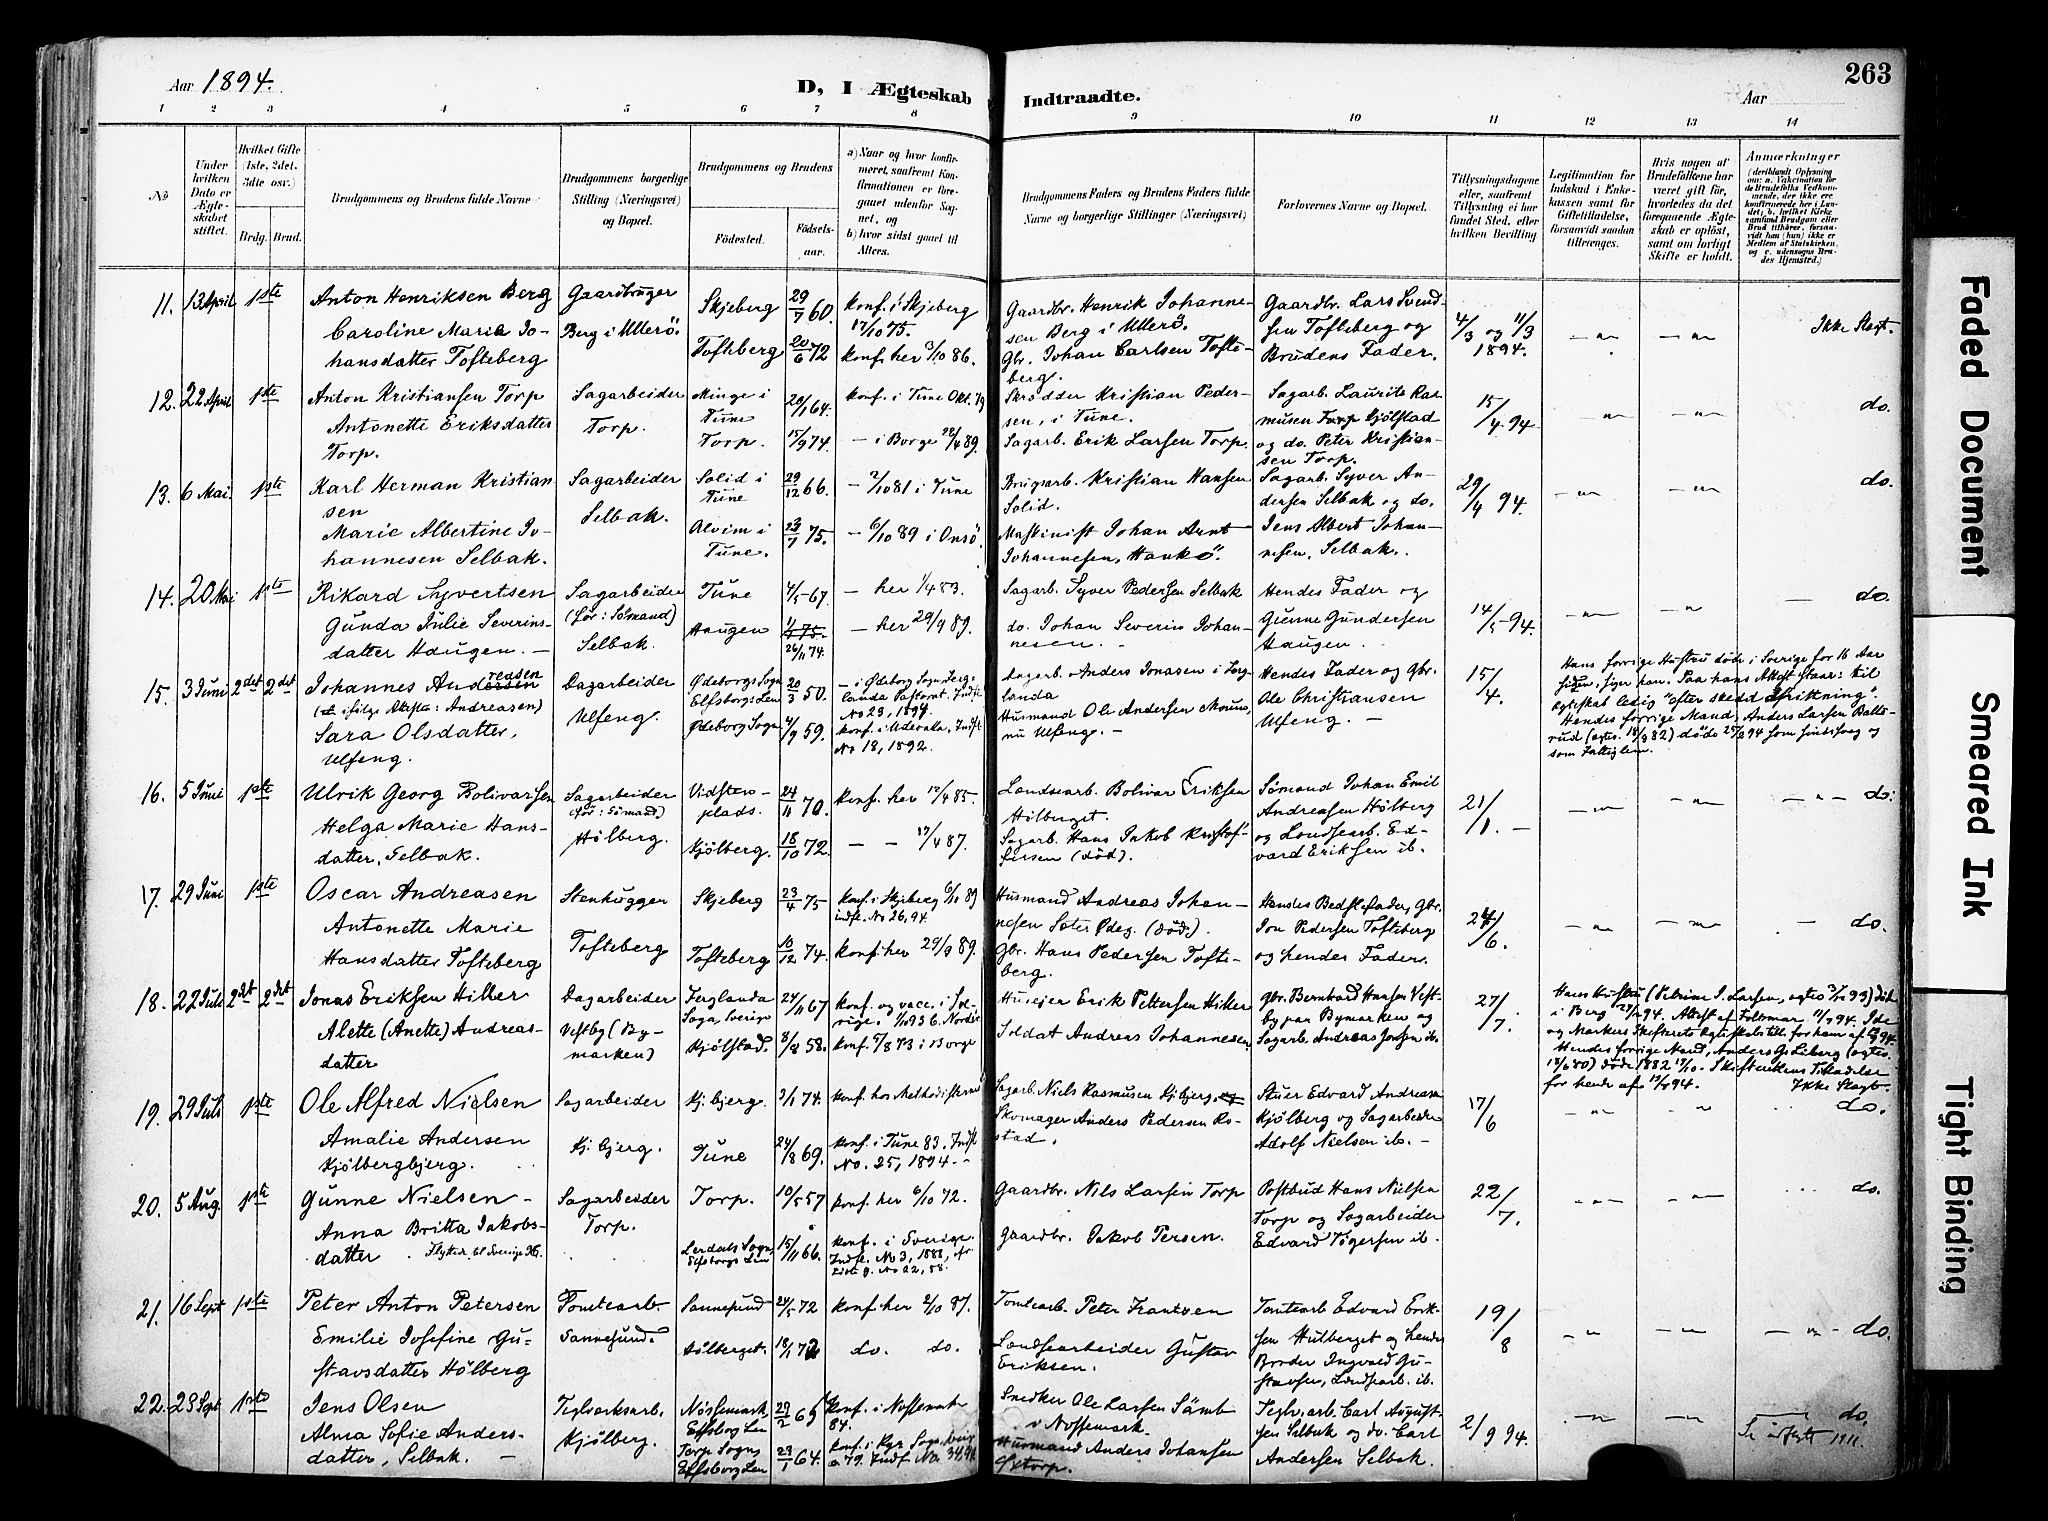 Aar 1894.
D, I Ægteskab Indtraadte.
Aar
263
1 2 3 4 5 6 7 8 9 10 11 12 13 14
No
Under hvilken Dato er Ægteskabet stiftet.
Hvilket Gifte (1ste, 2det, 3die osv.)
Brdg. Brud.
Brudgommens og Brudens fulde Navne
Brudgommens borgerlige Stilling (Næringsvei) og Bopæl.
Brudgommens og Brudens
Fødested. Fødselsaar.
a) Naar og hvor konfirmeret, saafremt Konfirmationen er foregaaet udenfor Sognet, og
b) hvor sidst gaaet til Alters.
Brudgommens Faders og Brudens Faders fulde Navne og borgerlige Stillinger (Næringsvei)
Forlovernes Navne og Bopæl.
Tillysningsdagene eller, saafremt Tillysning ei har fundet Sted, efter hvilken Bevilling
Legitimation for Indskud i Enkekassen samt for Giftetilladelse, forsaavidt saadan tiltrænges.
Hvis nogen af Brudefolkene har været gift før, hvorledes da det foregaaende Ægteskab er opløst, samt om lovligt Skifte er holdt.
Anmærkninger
(deriblandt Oplysning om: a. Vakcination for de Brudefolks Vedkommende, der ikke ere konfirmerede her i Landet; b. hvilket Kirkesamfund Brudgom eller Brud tilhører, forsaavidt han (hun) ikke er Medlem af Statskirken, og c. udensogns Brudes Hjemsted.)
11. 13 April 1ste Anton Henriksen Berg Gaardbruger Skjeberg 29/7 60. konf. i Skjeberg Gaardbr. Henrik Johanne- Gaardbr. Lars Svend-
Caroline Marie Jo- Berg i Ullerö. 17/10 75. sen Berg i Ullerö. sen Tofteberg og 4/3 og 11/3 — „ — — „ — Ikke Slegt.
hansdatter Tofteberg Tofteberg 20/6 72 konf. her 3/10 86. Gbr. Johan Carlsen Tofte- Brudens Fader. 1894.
berg.
12. 22 April 1ste Anton Kristiansen Torp Sagarbeider Minge i 20/1 64. konf. i Tune Okt. 79 Skrædder Kristian Peder- Sagarb. Laurits Ras- 15/4 94 — „ — — „ — do.
Antonette Eriksdatter Torp. Tune sen, i Tune. musen Torp Kjölstad
Torp. Torp. 15/9 74. — i Borge 28/4 89. Sagarb. Erik Larsen Torp. og do. Peter Kristian-
sen Torp.
13. 6 Mai. 1ste Karl Herman Kristian Sagarbeider Solid i 29/12 66. — 2/10 81 i Tune Brugsarb. Kristian Hansen Sagarb. Syver An- 29/4 94. — „ — — „ — do.
sen Selbak. Tune Solid. dersen Selbak og do.
Marie Albertine Jo- Alvim i 23/7 75. — 6/10 89 i Onsö. Maskinist Johan Arnt Jens Albert Johan-
hannesen Selbak. Tune. Johannesen, Hankö. nesen, Selbak.
14. 20 Mai 1ste Rikard Syvertsen Sagarbeider Tune 4/5 67. — her 1/4 83. Sagarb. Syver Pedersen Selbak Hendes Fader og 14/5 94. — „ — — „ — do.
Gunda Julie Severins- (før: Sömand) Haugen — her 29/9 89. do. Johan Severin Johan- Gunne Gundersen
datter Haugen. — Selbak. 26/11 74. nesen. Haugen.
15. 3 Juni 2det 2det Johannes Andersen Dagarbeider Ødeborgs Sogn 20/3 50. — i Ødeborg Sogn Ferg- Dagarb. Anders Jonasen i Ferg- Hendes Fader og Gbr. 15/4. Hans forrige Hustru døde i Sverige for 16 Aar
(ifølge Attester: Andreasen) Elfsborgs Len landa Pastorat. Indft. landa Ole Christiansen siden, siger han. Paa hans Attest staar: til
Sara Olsdatter, Ulfeng. Ødeborg Sogn 4/9 59. No 23, 1894. Husmand Ole Andersen Ulfeng. — Egteskab ledig "efter skedd Afvittning".
Ulfeng. konf. i Udevalla, Indft. nu Ulfeng. — Hendes forrige Mand, Anders Larsen
No 18, 1892. som Fattiglem.
16. 5 Juni 1ste Ulrik Georg Bolivarsen Sagarbeider Vidsten- 24/11 70. konf. her 12/4 85. Landsearb. Bolivar Eriksen Sømand Johan Emil 21/1. — — „ — — „ — — „ — do.
Helga Marie Hans- (før: Sömand) plads. Hilberget. Andreasen Hølberg
datter, Selbak. Hølberg. Kjölberg. 18/10 72. — — 17/4 87. Sagarb. Hans Jakob Kristof- og Landsearb. Ed-
fersen (død). vard Eriksen ib.
17. 29 Juni 1ste Oscar Andreasen Stenhugger Skjeberg 23/4 75 konf. i Skjeberg 6/10 89 Husmand Andreas Johan- Hendes Bedstefader, Gbr. 24/6. — „ — — „ — — do.
Antonette Marie Tofteberg indft. No 26, 94. nesen Sæter Ødeg. (død). Jon Pedersen Tofteberg
Hansdatter Tofteberg Tofteberg 16/12 74. konf. her 29/9 89. Gbr. Hans Pedersen Tofte- og hendes Fader.
berg.
18. 22 Juli 2det 2det Jonas Eriksen Hilker Dagarbeider Ferglanda 24/11 67 konf. og vacc. i Sve- Husejer Erik Pettersen Hilker Gbr. Bernhard Hansen Vest- 27/7.
Alette (Anette) Andreas- Vestby (By- Sogn, Sverige rige. Soldat Andreas Johannesen. by paa Bymarken og
datter marken) Kjölstad. 8/8 58. konf. 5/8 73 i Borge Sagarb. Andreas Josefsen ib.
Hendes forrige Mand, Anders
døde 1882 Skifterettens Tilladelse
for hende af 17/7 94. Ikke Slegt.
19. 29 Juli 1ste Ole Alfred Nielsen Sagarbeider Kj. bjerg. 3/1 74. konf. hos Methodisterne Sagarb. Niels Rasmussen Kj. bjerg. Stuer Edvard Andreasen 17/6 — „ — — „ — do.
Amalie Andersen Kj. bjerg. Tune 24/8 69. konf. i Tune 83. Indft. Skomager Anders Pedersen Ro- Kjölberg og Sagarbeider
Kjölbergbjerg. No. 25, 1894. — stad. Adolf Nielsen ib. —
20. 5 Aug. 1ste Gunne Nielsen — Sagarbeider Torp. 10/5 57 konf. her 6/10 72. Gaardbr. Nils Larsen Torp Postbud Hans Nielsen 22/7. — „ — — „ — do.
Anna Britta Jakobs- Torp. Torp og Sagarbeider
datter. Flyttet til Sverige 96. Lerdals Sogn, Elfsborgs Len 15/11 66. konf. i Sverige. Indft. No 3, 1888, Gaardbr. Jakob Persen. Edvard Tögersen ib.
No 22, 88.
21. 16 Sept 1ste Peter Anton Petersen Tomtearb. Sannesund 24/5 72 konf. her 2/10 87. Tomtearb. Peter Frantzen Tomtearb. Edvard Erik- 19/8 — „ — — „ — — „ — do.
Emilie Josefine Gu- Sannesund. Hölberget. 18/1 72 do. do. Landsearbeider Gustav sen Hulberget og hendes
stavsdatter Hölberg Eriksen. Broder Ingvald Gu-
stavsen, Landsearb. ib.
22. 23 Sept 1ste Jens Olsen Teglverksarb. Nössemark, 65 konf. i Nössemark Snedker Ole Larsen Sämb Teglv. arb. Carl August- 2/9 94. — „ — — „ — do.
Alma Sofie Anders- Kjölberg. Elfsborg Len 84. i Nössemark. sen Selbak og do. Carl Se 1911.
datter, Selbak. — Torp Sogn, 23/1 64. Husmand Anders Johansen Andersen Selbak.
Elfsborg Len torp.
Faded Document
Smeared Ink
Tight Binding